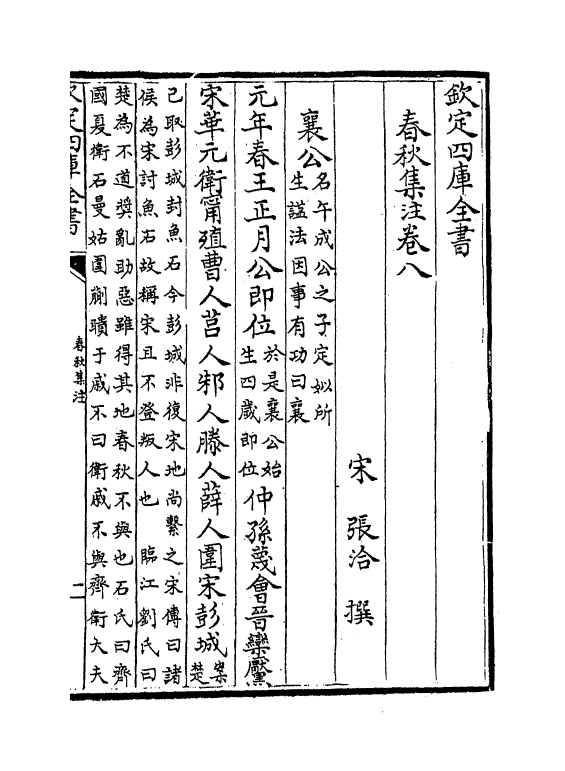 欽定四庫全書
春秋集注卷八
宋 張洽 撰
襄公名午成公之子定姒所生諡法因事有功曰襄
元年春王正月公即位於是襄公始生四歲即位仲孫蔑會晉欒黶
宋華元衛甯殖曹人莒人邾人滕人薛人圍宋彭城案楚
已取彭城封魚石今彭城非復宋地尚繫之宋傳曰諸
侯為宋討魚石故稱宋且不登叛人也 臨江劉氏曰
楚為不道獎亂助惡雖得其地春秋不與也石氏曰齊
國夏衛石曼姑圍蒯聵于戚不曰衛戚不與齊衛大夫
欽定四庫全書
春秋集注
一